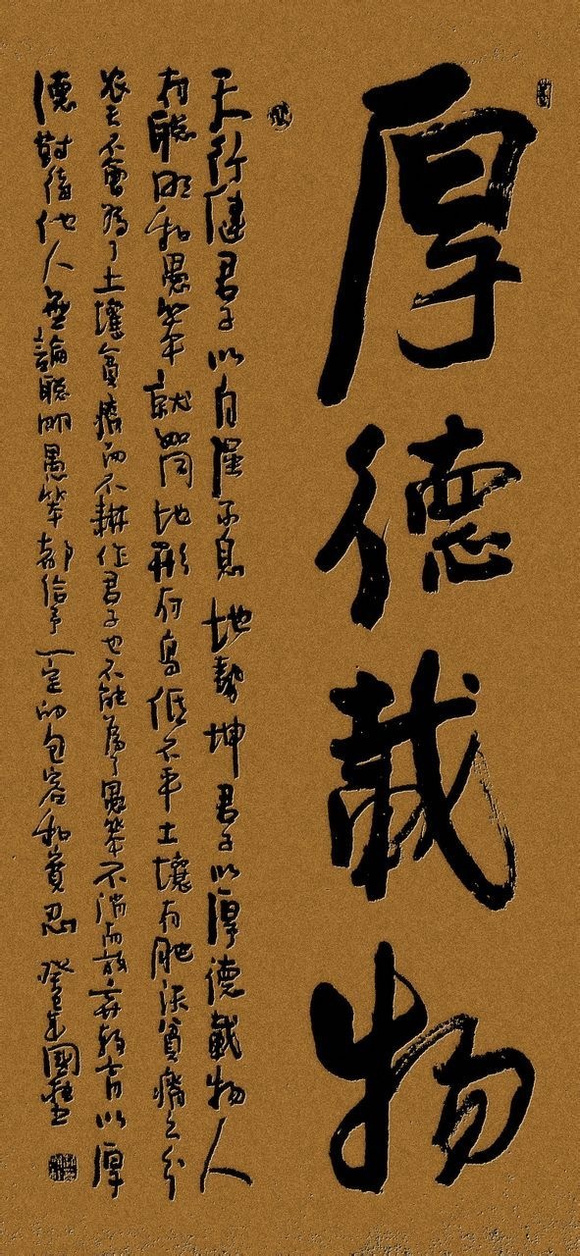 厚德載物
天行健君子以自强不息地勢坤君子以厚德載物人
有聰明和愚笨就如同地形有高低不平土壤有肥沃貧瘠之分
农夫不會為了土壤貧瘠而不耕作君子也不能為了愚笨不肖而放弃教育以厚
德對待他人無論聰明愚笨都给予一定的包容和寬忍 癸巳朱國